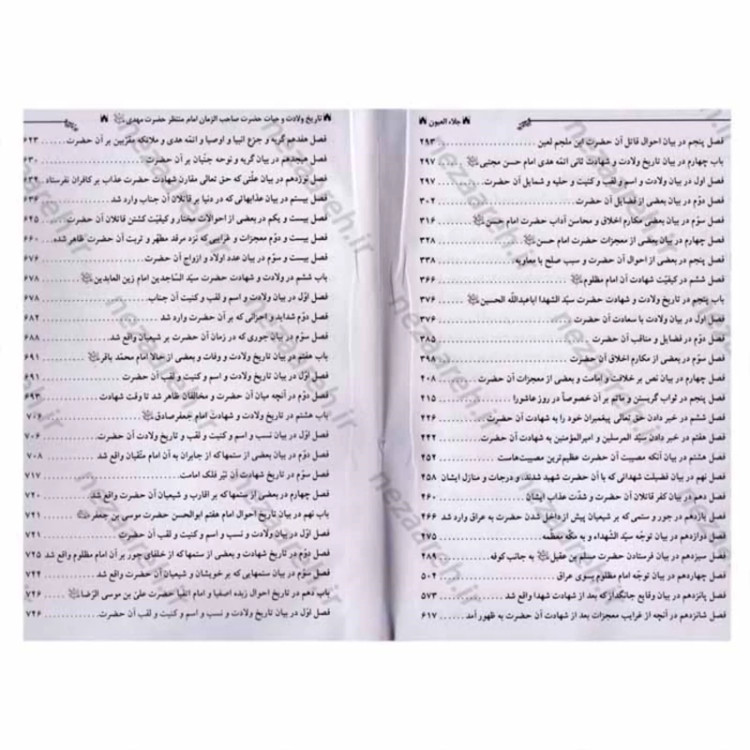 جلاء العیون
فصل پنجم در بیان احوال قاتل آن حضرت ابن ملجم لعین ۲۹۳
باب چهارم در بیان تاریخ ولادت و شهادت ثانی ائمّه هدی امام حسن مجتبی ۲۹۷
فصل اول در بیان ولادت و اسم و لقب و کنیت و حلیه و شمایل آن حضرت ۲۹۷
فصل دوم در بیان بعضی از فضایل آن حضرت ۳۰۲
فصل سوّم در بیان بعضی مکارم اخلاق و محاسن آداب حضرت امام حسن ۳۱۶
فصل چهارم در بیان بعضی از معجزات حضرت امام حسن ۳۲۸
فصل پنجم در بعضی از احوال آن حضرت و سبب صلح با معاویه ۳۳۸
فصل ششم در کیفیّت شهادت آن امام مظلوم ۳۶۶
باب پنجم در تاریخ ولادت و شهادت حضرت سیّد الشهدا اباعبدالله الحسین ۳۷۶
فصل اول در بیان ولادت با سعادت آن حضرت ۳۷۶
فصل دوّم در فضایل و مناقب آن حضرت ۳۸۵
فصل سوّم در بعضی از مکارم اخلاق آن حضرت ۳۹۸
فصل چهارم در بیان نص بر خلافت و امامت و بعضی از معجزات آن حضرت ۴۰۸
فصل پنجم در ثواب گریستن و ماتم بر آن خصوصاً در روز عاشورا ۴۱۵
فصل ششم در خبر دادن حق تعالی پیغمبران خود را به شهادت آن حضرت ۴۲۶
فصل هفتم در خبر دادن سیّد المرسلین و امیرالمؤمنین به شهادت آن حضرت ۴۴۲
فصل هشتم در بیان آنکه مصیبت آن حضرت عظیم‌ترین مصیبت‌هاست ۴۵۴
فصل نهم در بیان فضیلت شهدائی که با آن حضرت شهید شدند، و درجات و منازل ایشان ۴۵۸
فصل دهم در بیان کفر قاتلان آن حضرت و شدّت عذاب ایشان ۴۶۰
فصل یازدهم در جور و ستمی که بر شیعیان پیش از داخل شدن حضرت به عراق وارد شد ۴۶۶
فصل دوازدهم در بیان توجّه سیّد الشّهداء و به مکّه معظّمه ۴۷۵
فصل سیزدهم در بیان فرستادن حضرت مسلم بن عقیل به جانب کوفه ۴۸۹
فصل چهاردهم در بیان توجّه امام مظلوم بسوی عراق ۵۰۴
فصل پانزدهم در بیان وقایع جانگداز که بعد از شهادت شهدا واقع شد ۵۷۳
فصل شانزدهم در آنچه از غرایب معجزات بعد از شهادت آن حضرت به ظهور آمد ۶۱۷
تاریخ ولادت و حیات حضرت صاحب الزمان امام منتظر حضرت مهدی
فصل هفدهم گریه و جزع انبیا و اوصیا و ائمّه هدی و ملائکه مقرّبین بر آن حضرت ۶۲۳
فصل هیجدهم در بیان گریه و نوحه جنّیان بر آن حضرت ۶۳۰
فصل نوزدهم در بیان علّتی که حق تعالی مقارن شهادت حضرت عذاب بر کافران نفرستاد ۶۳۴
فصل بیستم در بیان عذابهائی که در دنیا بر قاتلان آن جناب وارد شد ۶۳۶
فصل بیست و یکم در بعضی از احوالات مختار و کیفیّت کشتن قاتلان آن حضرت ۶۴۵
فصل بیست و دوم معجزات و غرایبی که نزد مرقد مطهّر و تربت آن حضرت ظاهر شده ۶۶۰
فصل بیست و سوّم در بیان عدد اولاد و ازواج آن حضرت ۶۷۶
باب ششم در ولادت و شهادت حضرت سیّد السّاجدین امام زین العابدین ۶۷۸
فصل اوّل در بیان ولادت و اسم و لقب و کنیت آن جناب ۶۷۸
فصل دوّم شداید و احزانی که بر آن حضرت وارد شد ۶۸۲
فصل سوّم در بیان جوری که در زمان آن حضرت بر شیعیان وارد شد ۶۸۸
باب هفتم در بیان تاریخ ولادت و وفات و بعضی از حالا امام محمّد باقر ۶۹۱
فصل اوّل در بیان تاریخ ولادت و اسم و کنیت و لقب آن حضرت ۶۹۱
فصل دوّم در آنچه میان آن حضرت و مخالفان ظاهر شد تا وقت شهادت ۶۹۳
باب هشتم در تاریخ ولادت و شهادت امام جعفرصادق ۷۰۶
فصل اوّل در بیان نسب و اسم و کنیت و لقب و تاریخ ولادت آن حضرت ۷۰۶
فصل دوّم در بیان بعضی از ستمها که از جابران به آن امام متّقیان واقع شد ۷۰۸
فصل سوّم در تاریخ شهادت آن نیّر فلک امامت ۷۱۷
فصل چهارم در بعضی از ستمها که بر اقارب و شیعیان آن حضرت واقع شد ۷۲۰
باب نهم در بیان تاریخ احوال امام هفتم ابوالحسن حضرت موسی بن جعفر ۷۲۱
فصل اوّل در بیان ولادت و نسب و اسم و کنیت و لقب آن حضرت ۷۲۱
فصل دوّم در تاریخ شهادت و بعضی از ستمها که از خلفای جور بر آن امام مظلوم واقع شد ۷۲۵
فصل سوّم در بیان ستمهایی که بر خویشان و شیعیان آن حضرت واقع شد ۷۴۴
باب دهم در تاریخ احوال زبده اصفیا و امام اتقیا حضرت علیّ بن موسی الرّضا ۷۴۶
فصل اوّل در بیان تاریخ ولادت و نسب و اسم و کنیت و لقب آن حضرت ۷۴۶
nezaareh.ir